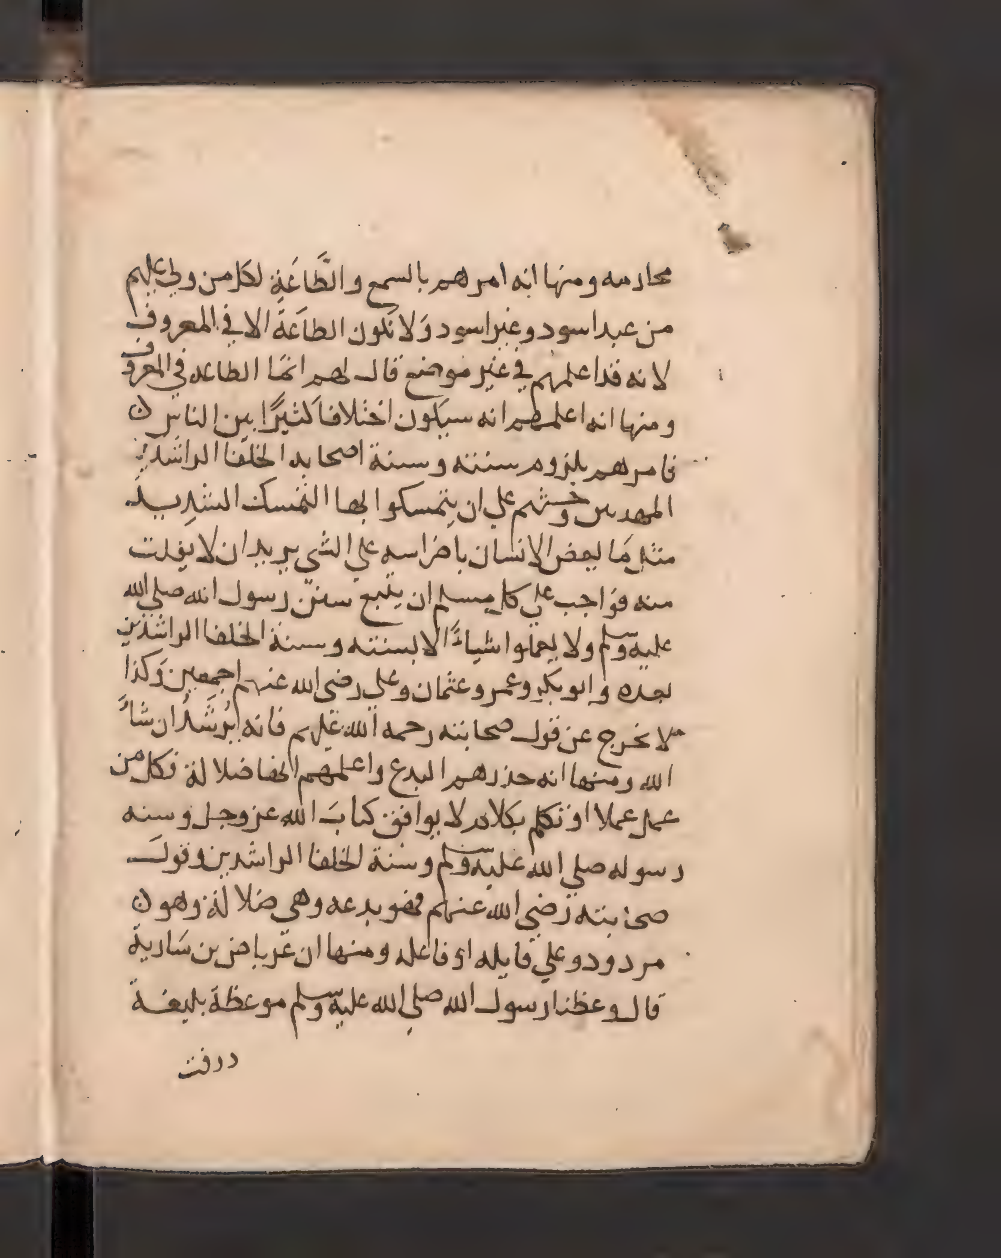 محارمه ومنها انه امرهم بالسمع والطَّاعَةِ لكل من ولي عليهم
من عبد اسود وغير اسود وَلا تكون الطاعَة الا في المعروف
لانه قد اعلمهم في غير موضع قال لهم انما الطاعه في المعروف
ومنها انه اعلمهم انه سيكون اختلافا كثيرًا بين الناس
فامرهم بلزوم سنته وسنة اصحابه الخلفا الراشدين
المهديين وحثهم علي ان يتمسكوا بها التمسك الشديد
مثل مَا يعض الانسان باضراسه علي الشي يريد ان لا يفلت
منه فواجب علي كل مسلم ان يتبع سنن رسول الله صلي الله
عليه وسلم ولا يعملوا اشياءً الا بسنته وسنة الخلفا الراشدين
بعده وابو بكر وعمر وعثمان وعلي رضي الله عنهم اجمعين وَكذا
لا يخرج عن قول صحابته رحمة الله عليهم فانه يُرشَدُ ان شاءَ
الله ومنها انه حذرهم البدع واعلمهم انها ضلالة فكل من
عمل عملا او تكلم بكلام لا يوافق كتابَ الله عز وجل وسنه
رسوله صلي الله عليه وسلم وسنة الخلفا الراشدين وقول
صحابته رَضي الله عنهم فهو بدعه وهي ضلالة وهو
مردود علي قايله او فاعله ومنها ان عرباض بن سَارية
قال وعظنا رسول الله صلي الله عليه وسلم موعظة بليغة
درفت